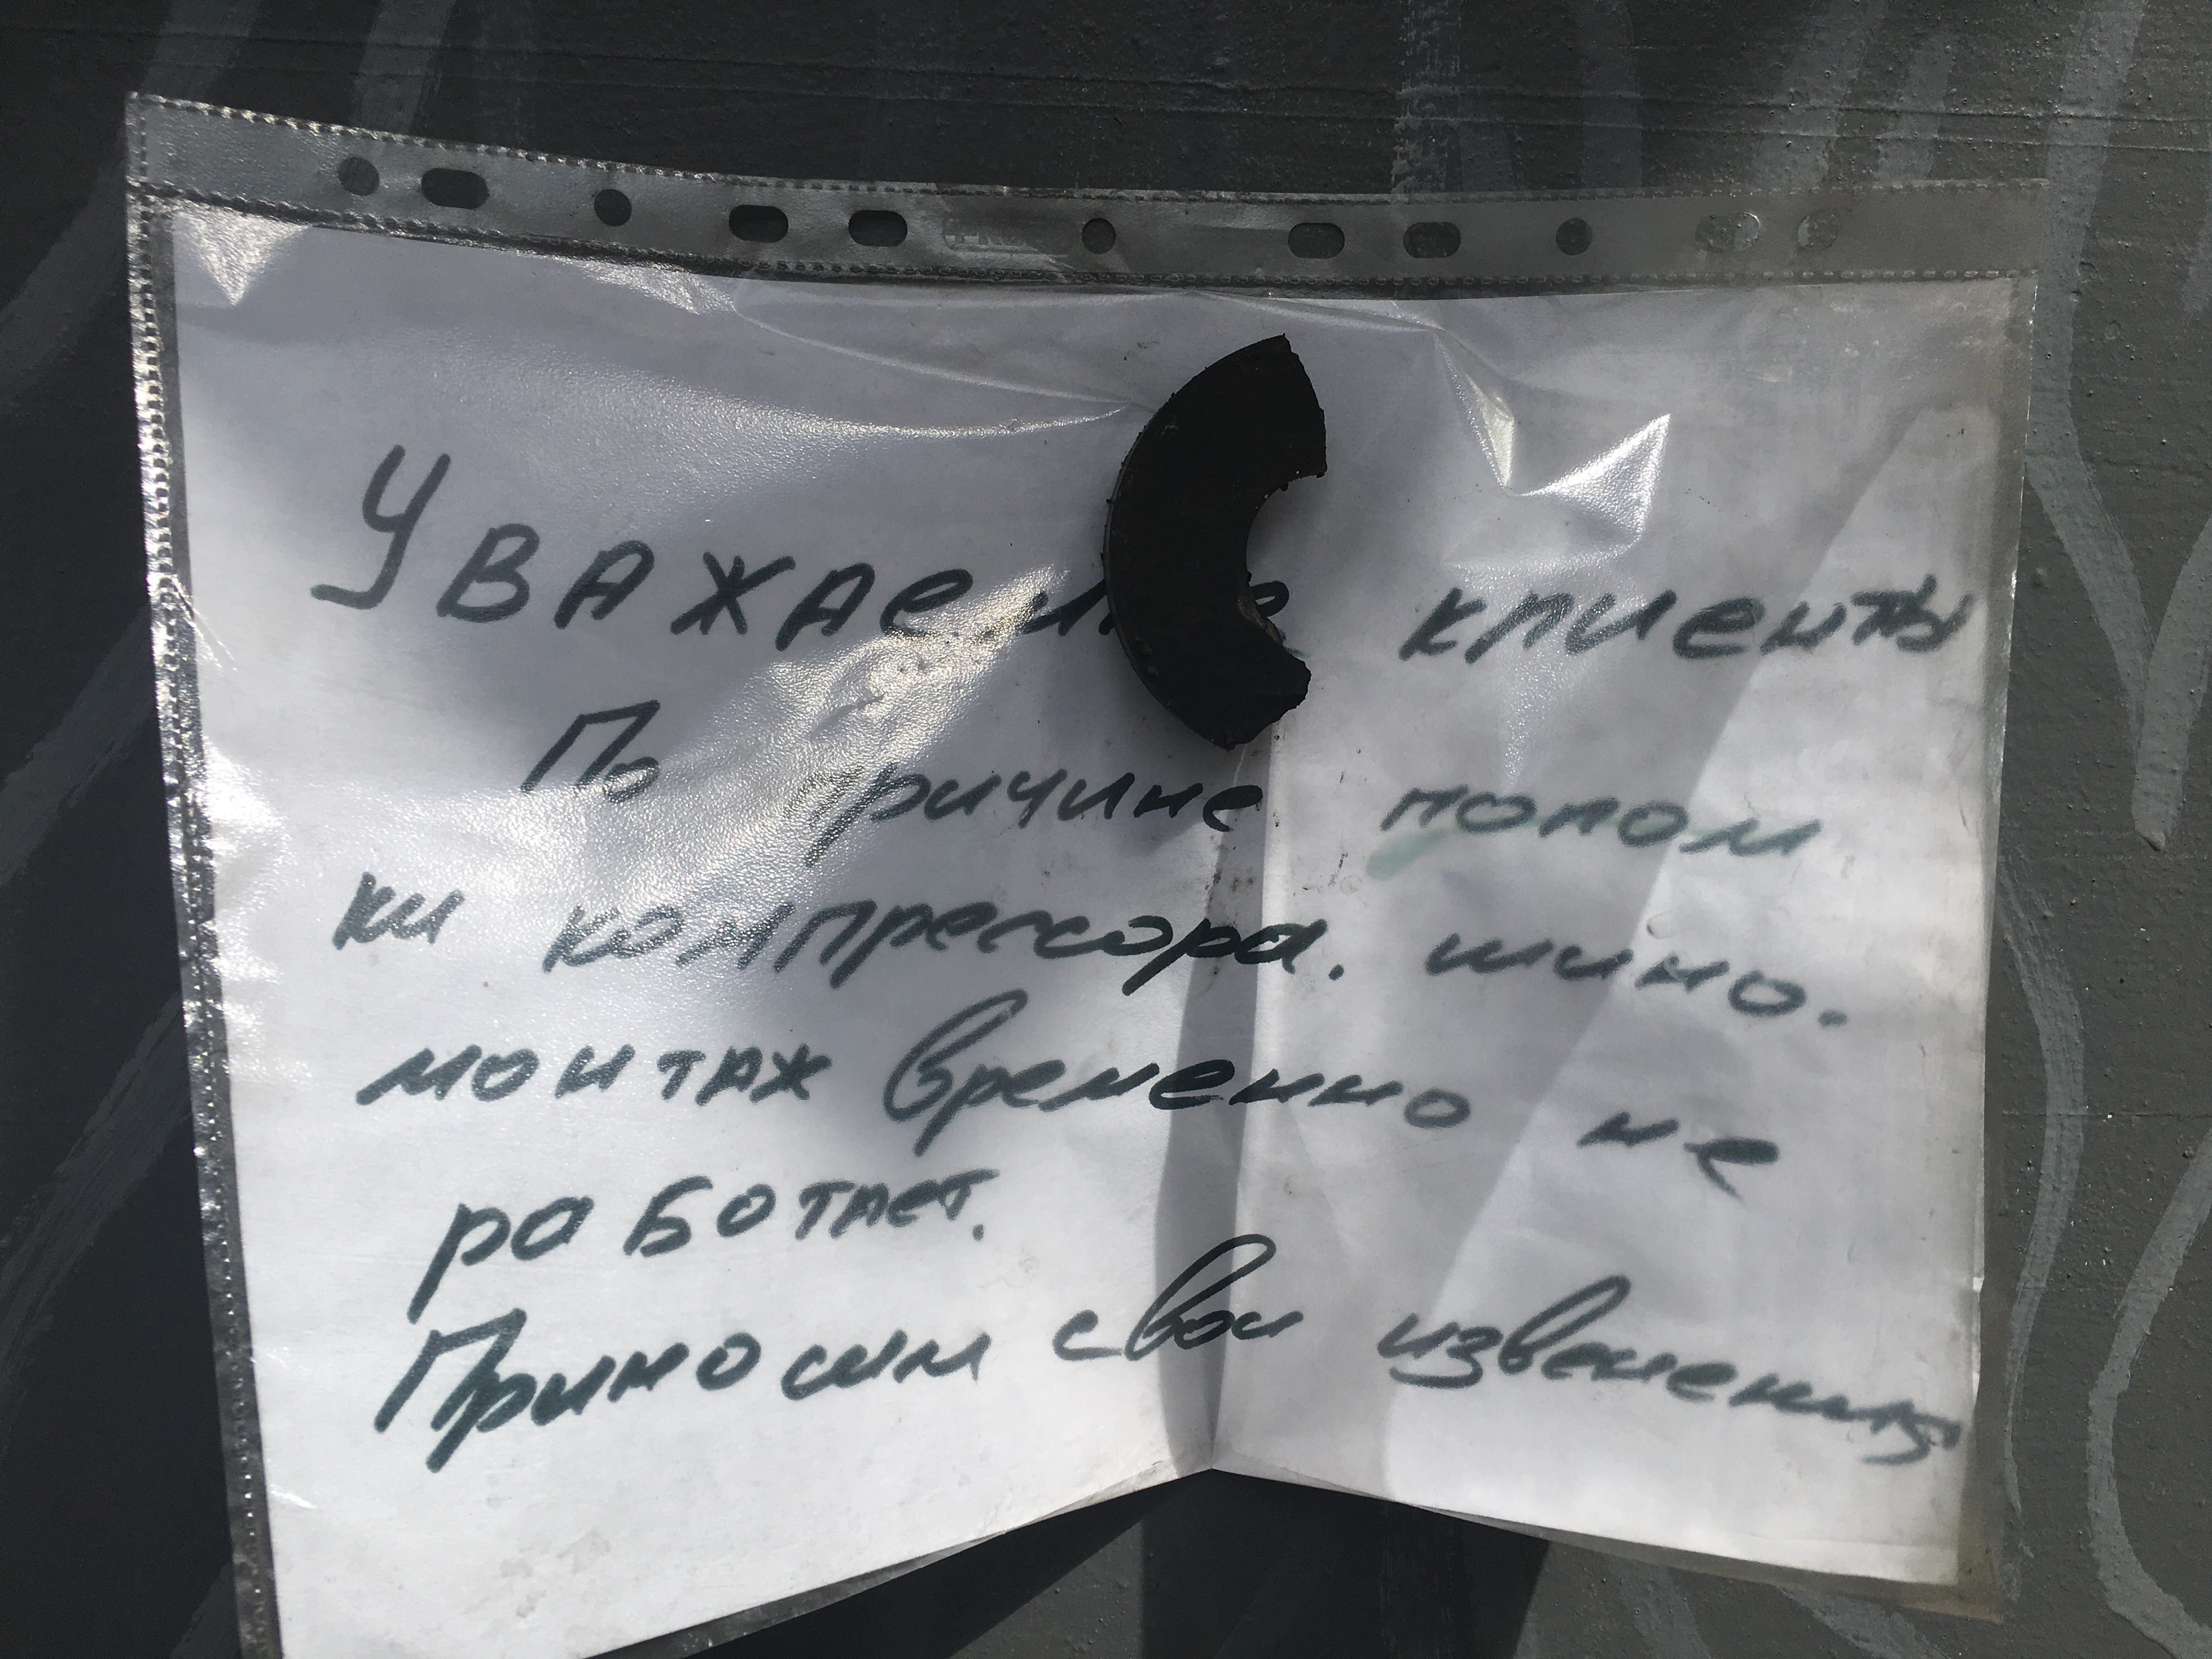 Уважаемые клиенты
По причине полом
ки компрессора. шино.
монтаж временно не
работает.
Приносим свои извенения